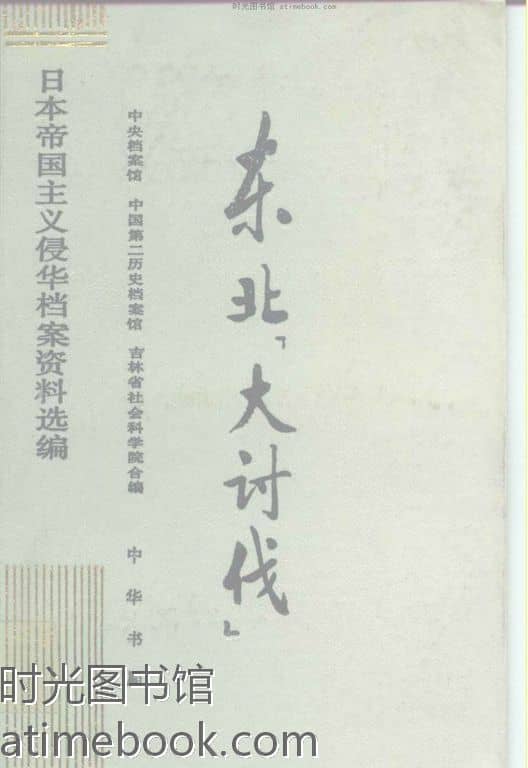 时光图书馆 atimebook.com
东北「大讨伐」
中央档案馆 中国第二历史档案馆 吉林省社会科学院合编
中华书
日本帝国主义侵华档案资料选编
时光图书馆
atimebook.com